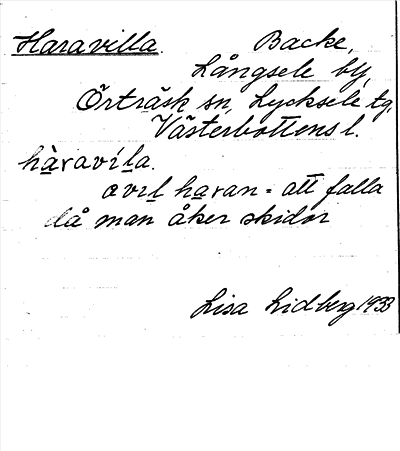 Haravilla. Backe,
Långsele by,
Örträsk sn, Lycksele tg.
Västerbottens l.
hàravíla.
ovıl haran = att falla
då man åker skidor
Lisa Lidberg 1933